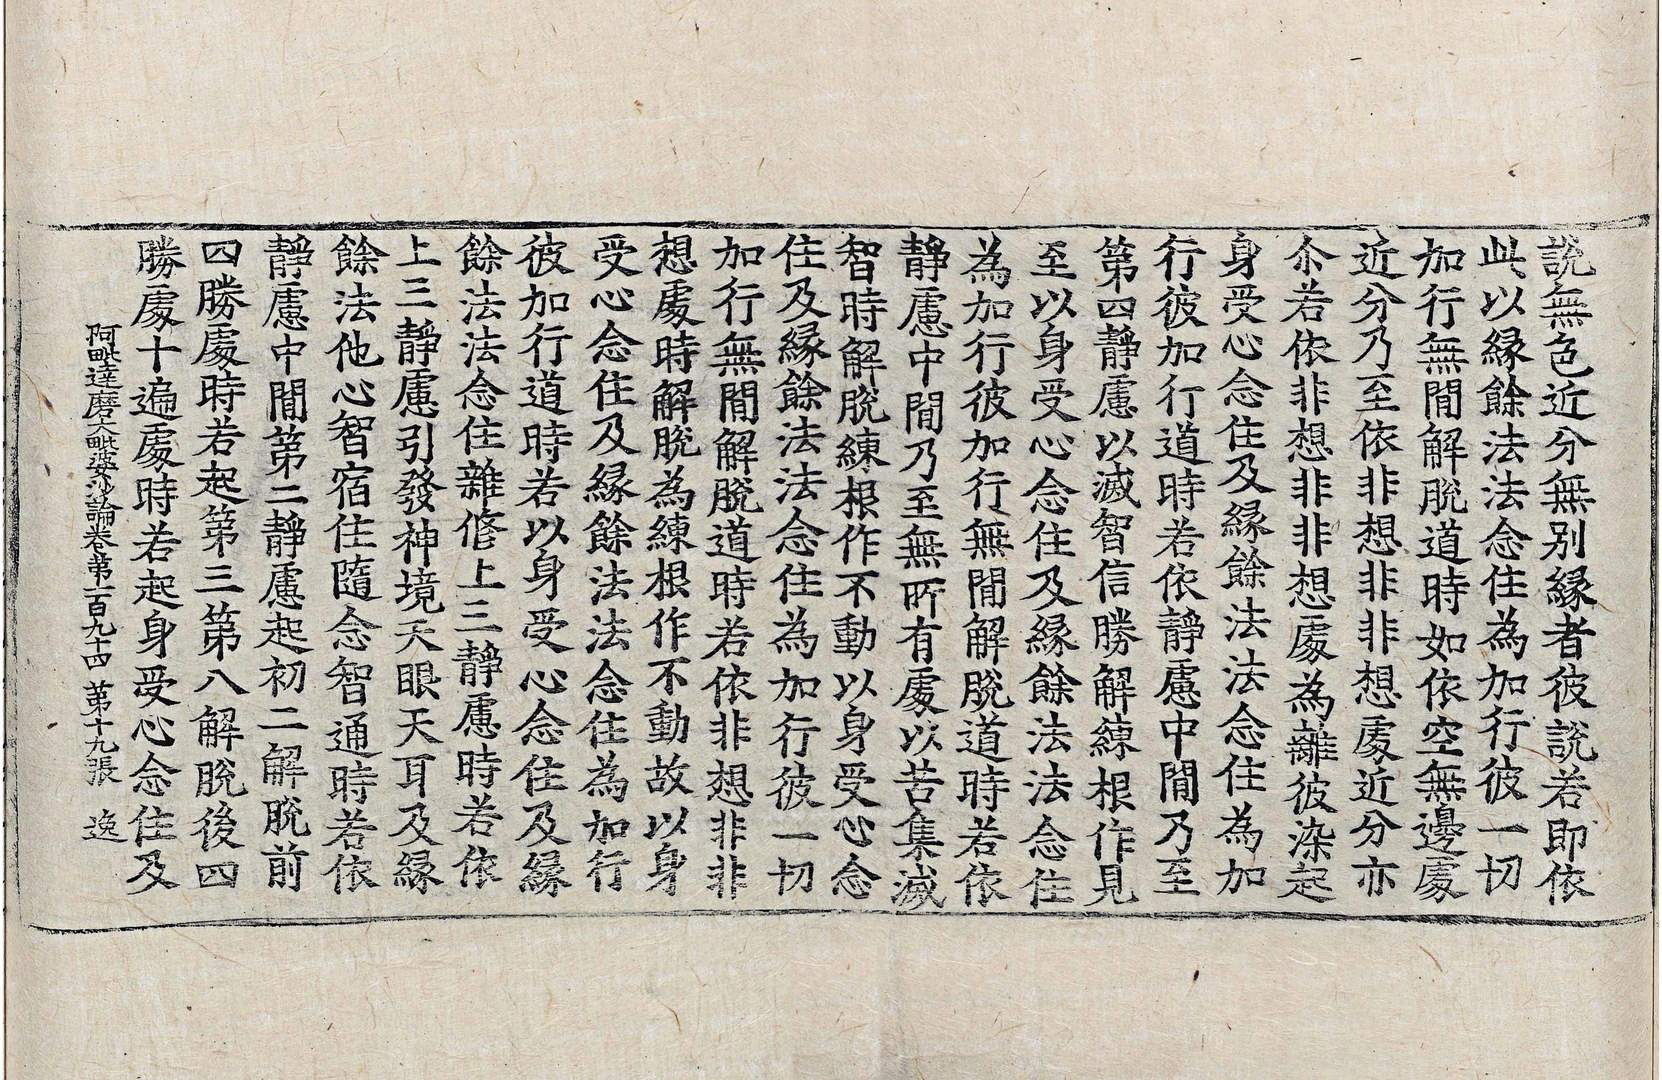 說無色近分無別縁者彼說若即依
此以縁餘法法念住為加行彼一切
加行無間解脫道時如依空無邊處
近分乃至依非想非非想處近分亦
尒若依非想非非想處為離彼染起
身受心念住及縁餘法法念住為加
行彼加行道時若依靜慮中間乃至
第四靜慮以滅智信勝解練根作見
至以身受心念住及縁餘法法念住
為加行彼加行無間解脫道時若依
靜慮中間乃至無所有處以苦集滅
智時解脫練根作不動以身受心念
住及縁餘法法念住為加行彼一切
加行無間解脫道時若依非想非非
想處時解脫為練根作不動故以身
受心念住及縁餘法法念住為加行
彼加行道時若以身受心念住及縁
餘法法念住雜修上三靜慮時若依
上三靜慮引發神境天眼天耳及縁
餘法他心智宿住隨念智通時若依
靜慮中間第二靜慮起初二解脫前
四勝處時若起第三第八解脫後四
勝處十遍處時若起身受心念住及
阿毗達磨大毗婆沙論卷第一百九十四 第十九張 逸